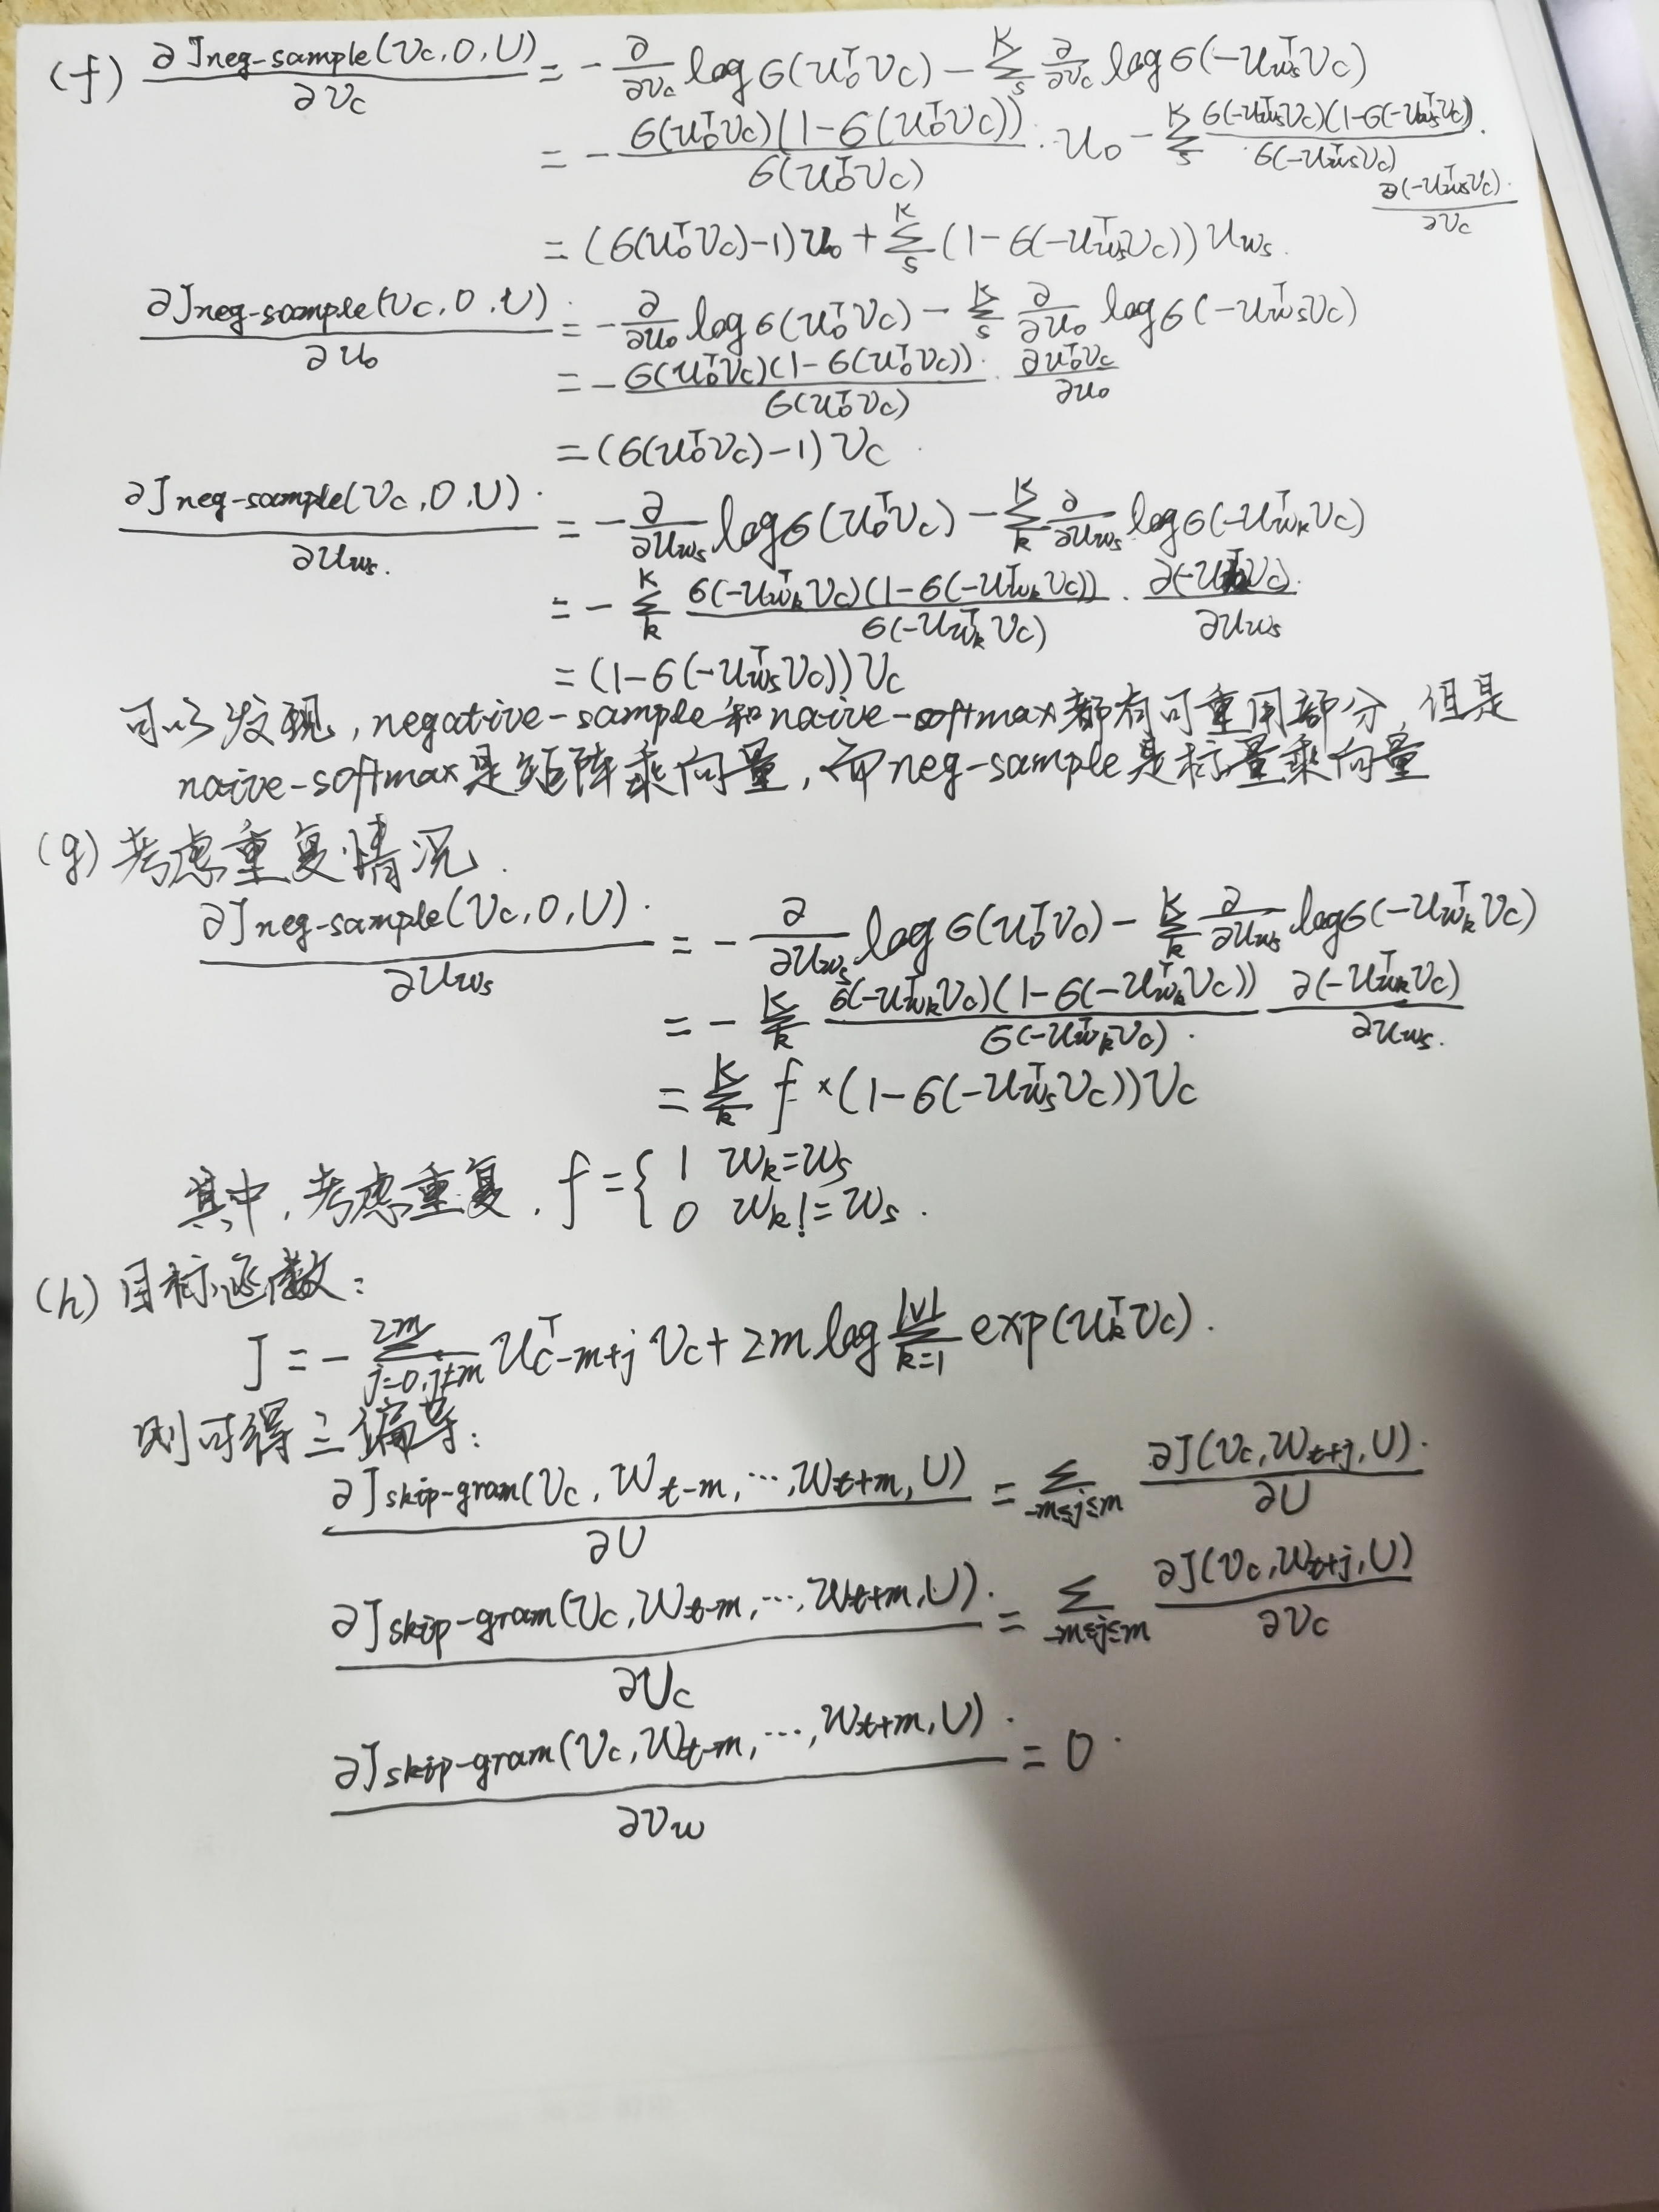 (f) ∂Jneg-sample(Vc,O,U)/∂Vc = -∂/∂Vc log σ(Uo^T Vc) - Σ_s^K ∂/∂Vc log σ(-Uws^T Vc)
= - σ(Uo^T Vc)(1-σ(Uo^T Vc))/σ(Uo^T Vc) · Uo - Σ_s^K σ(-Uws^T Vc)(1-σ(-Uws^T Vc))/σ(-Uws^T Vc) · ∂(-Uws^T Vc)/∂Vc
= (σ(Uo^T Vc)-1)Uo + Σ_s^K (1-σ(-Uws^T Vc))Uws.
∂Jneg-sample(Vc,O,U)/∂Uo = -∂/∂Uo log σ(Uo^T Vc) - Σ_s^K ∂/∂Uo log σ(-Uws^T Vc)
= - σ(Uo^T Vc)(1-σ(Uo^T Vc))/σ(Uo^T Vc) · ∂Uo^T Vc/∂Uo
= (σ(Uo^T Vc)-1)Vc
∂Jneg-sample(Vc,O,U)/∂Uws = -∂/∂Uws log σ(Uo^T Vc) - Σ_k^K ∂/∂Uws log σ(-Uwk^T Vc)
= - Σ_k^K σ(-Uwk^T Vc)(1-σ(-Uwk^T Vc))/σ(-Uwk^T Vc) · ∂(-U^T Vc)/∂Uws
= (1-σ(-Uws^T Vc))Vc
可以发现,negative-sample和naive-softmax都有可重用部分,但是
naive-softmax是矩阵乘向量,而neg-sample是标量乘向量
(g) 考虑重复情况.
∂Jneg-sample(Vc,O,U)/∂Uws = -∂/∂Uws log σ(Uo^T Vc) - Σ_k^K ∂/∂Uws log σ(-Uwk^T Vc)
= - Σ_k^K σ(-Uwk^T Vc)(1-σ(-Uwk^T Vc))/σ(-Uwk^T Vc) · ∂(-Uwk^T Vc)/∂Uws
= Σ_k^K f×(1-σ(-Uws^T Vc))Vc
其中,考虑重复. f={1 Wk=Ws
0 Wk!=Ws.
(h) 目标函数:
J = - Σ_{j=0,j≠m}^{2m} U^T_{c-m+j} Vc + 2m log Σ_{k=1}^{|V|} exp(Uk^T Vc).
则可得三偏导:
∂Jskip-gram(Vc,Wt-m,…,Wt+m,U)/∂U = Σ_{-m≤j≤m} ∂J(Vc,Wt+j,U)/∂U
∂Jskip-gram(Vc,Wt-m,…,Wt+m,U)/∂Vc = Σ_{-m≤j≤m} ∂J(Vc,Wt+j,U)/∂Vc
∂Jskip-gram(Vc,Wt-m,…,Wt+m,U)/∂Vw = 0